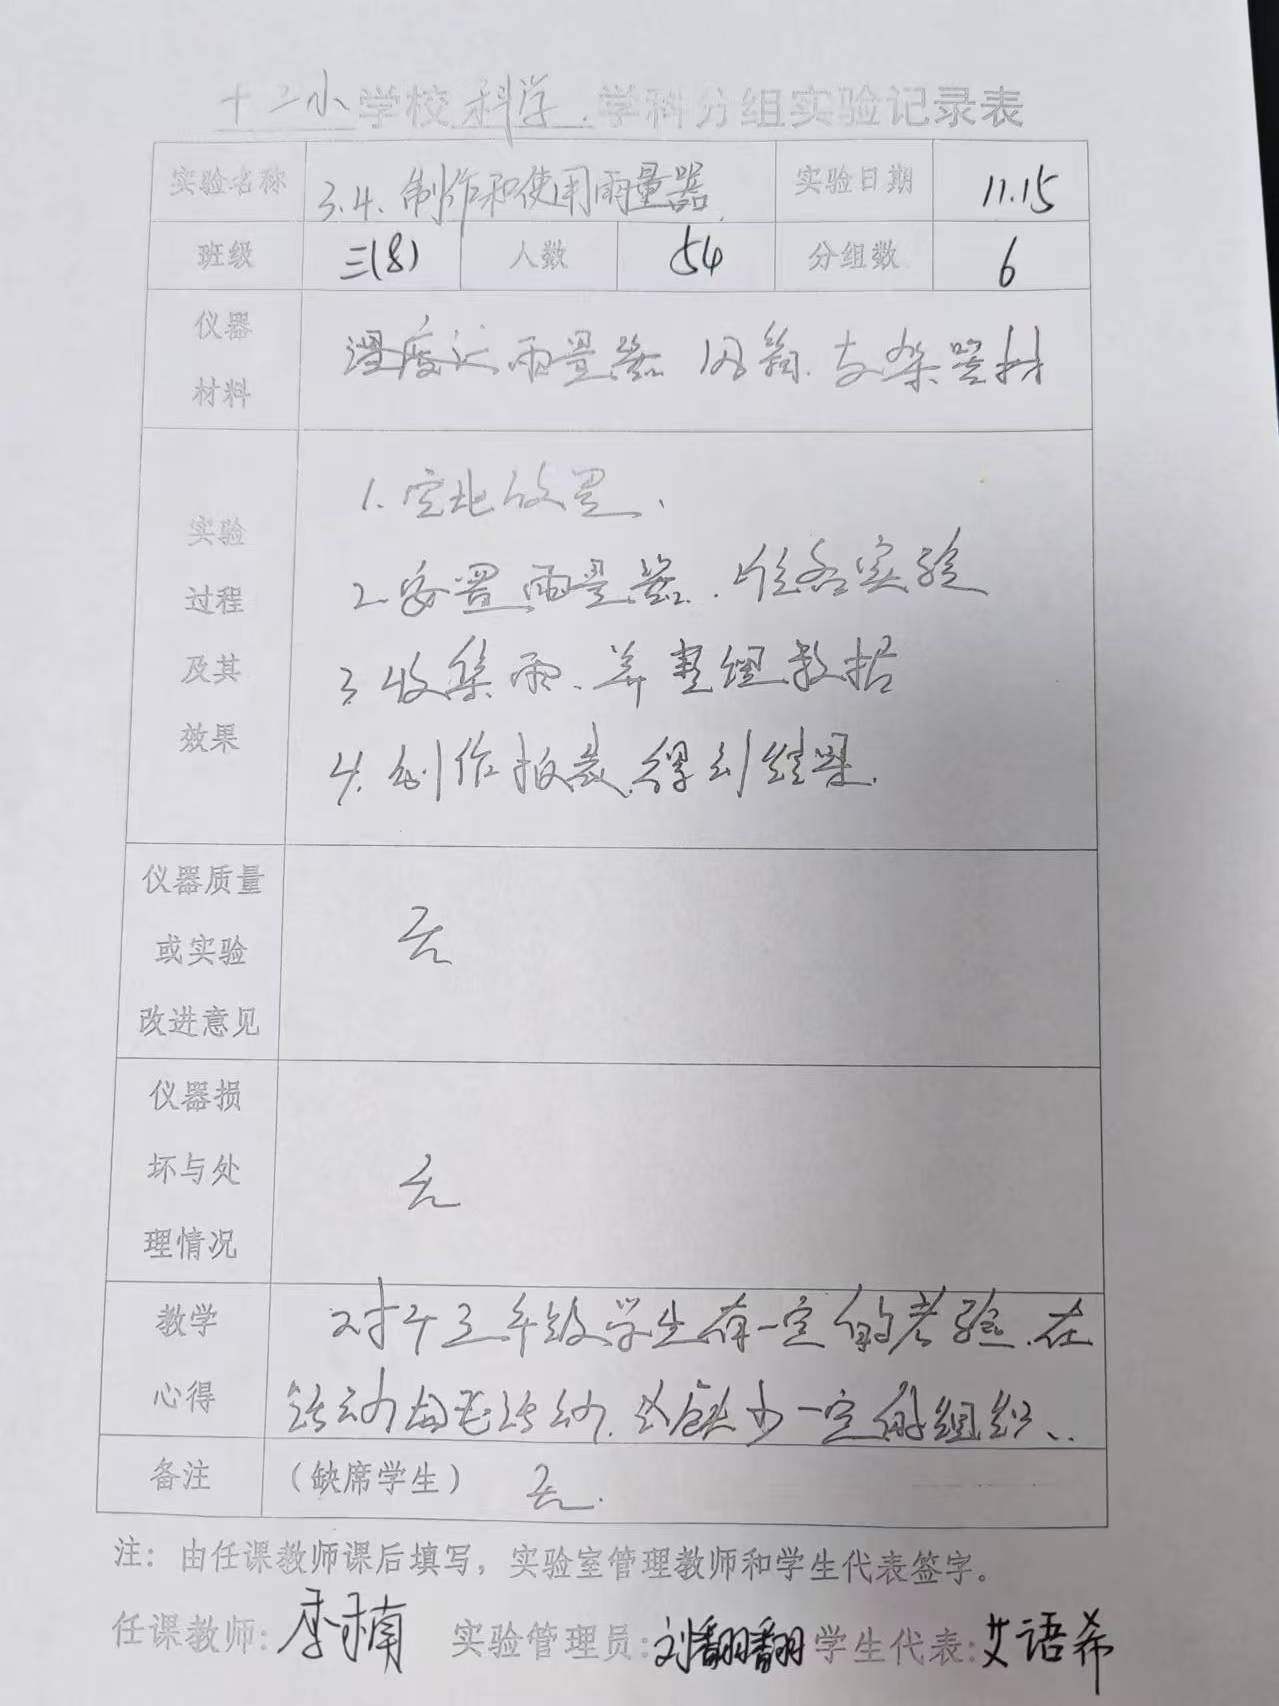 十二小学校科学学科分组实验记录表
实验名称 3.4.制作和使用雨量器 实验日期 11.15
班级 三(8) 人数 54 分组数 6
仪器
材料
温度计 雨量器 支架器材
实验
过程
及其
效果
1.定地放置、
2.安置雨量器.准备实验
3.收集雨、并整理数据
4.制作报表,得到结果.
仪器质量
或实验
改进意见
无
仪器损
坏与处
理情况
无
教学
心得
对于三年级学生有一定的考验.在
活动 活动. 缺少一定的组织、.
备注 (缺席学生) 无.
注：由任课教师课后填写，实验室管理教师和学生代表签字。
任课教师: 李楠 实验管理员: 刘翻翻 学生代表: 艾语希